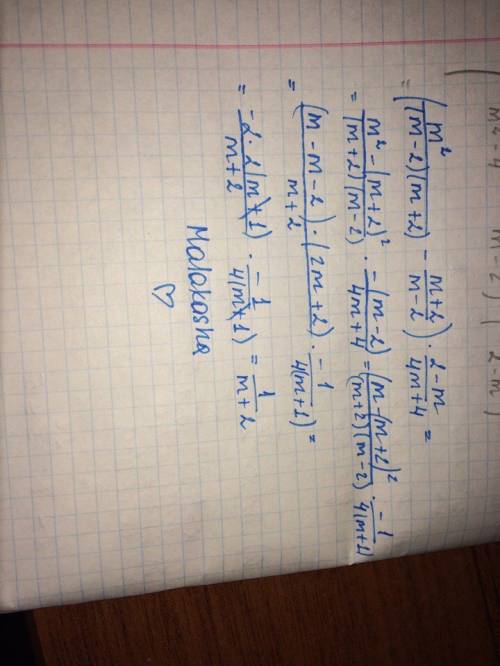 = (m²/((m-2)(m+2)) - (m+2)/(m-2)) · (2-m)/(4m+4) =
= (m²-(m+2)²)/((m+2)(m-2)) · (-(m-2))/(4m+4) = (m-(m+2)²)/((m+2)(m-2)) · (-1)/(4(m+1)
= ((m-m-2)·(2m+2))/(m+2) · (-1)/(4(m+1)) =
= (-2·2(m+1))/(m+2) · (-1)/(4(m+1)) = 1/(m+2)
Malakasha
♡